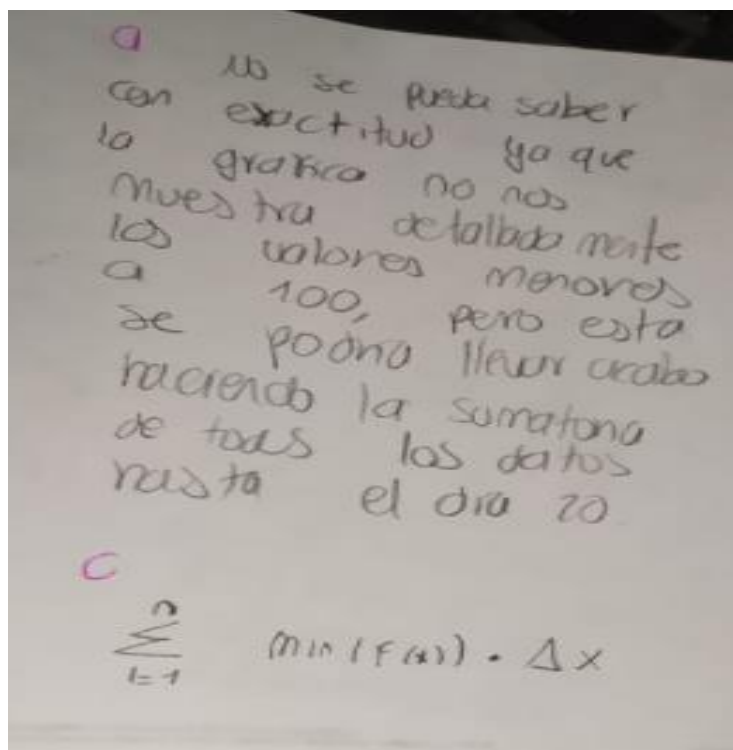 a
No se pueda saber
con exactitud ya que
la grafica no nos
muestra detallada mente
los valores menores
a 100, pero esta
se podria llevar acabo
haciendo la sumatoria
de todos los datos
hasta el dia 20
c
n
∑ min(f(x)) · Δx
i=1